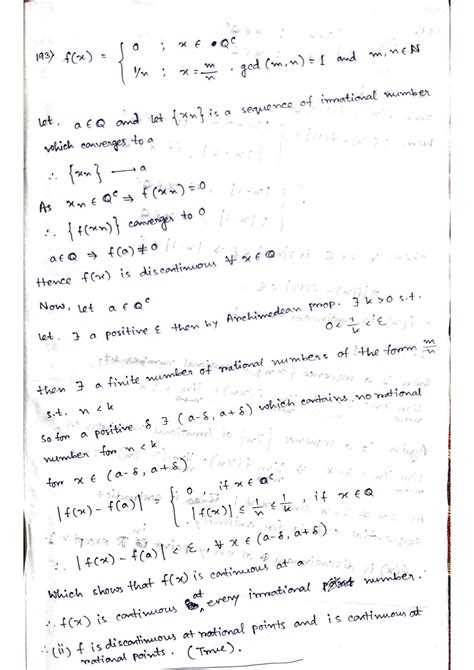 193) f(x) = { 0 ; x ∈ Q^c
1/n ; x = m/n , gcd(m,n) = 1 and m,n ∈ N
Let, a ∈ Q and let {xn} is a sequence of irrational number
which converges to a
∴ {xn} → a
As xn ∈ Q^c ⇒ f(xn) = 0
∴ {f(xn)} converges to 0
a ∈ Q ⇒ f(a) ≠ 0
Hence f(x) is discontinuous ∀ x ∈ Q
Now, Let a ∈ Q^c
Let. ∃ a positive ε then by Archimedean prop. ∃ k > 0 s.t.
0 < 1/k < ε
then ∃ a finite number of rational numbers of the form m/n
s.t. n < k
So for a positive δ ∃ (a-δ, a+δ) which contains no rational
number for n < k
for x ∈ (a-δ, a+δ)
|f(x) - f(a)| = { 0 , if x ∈ Q^c
|f(x)| ≤ 1/n ≤ 1/k , if x ∈ Q
∴ |f(x) - f(a)| < ε, ∀ x ∈ (a-δ, a+δ).
Which shows that f(x) is continuous at a
∴ f(x) is continuous at every irrational number.
∴ (ii) f is discontinuous at rational points and is continuous at
rational points. (True).